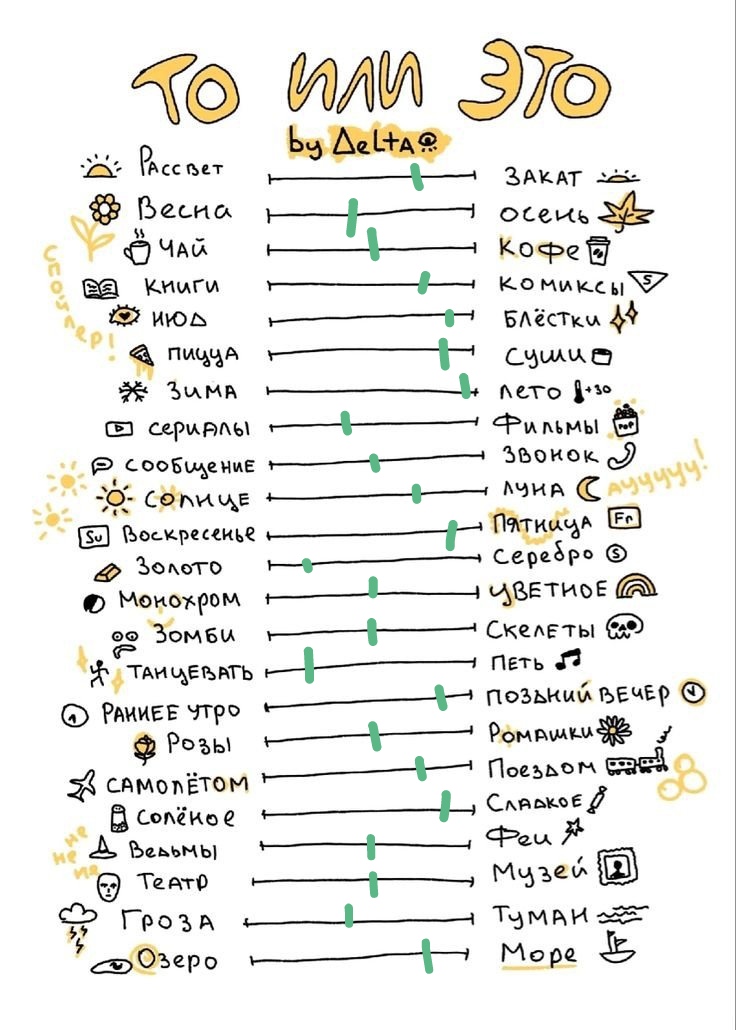 ТО ИЛИ ЭТО
by DELTA
Рассвет ЗАКАТ
Весна осень
ЧАЙ Кофе
Книги комиксы S
нюд БЛёстки
СПОЙЛЕР!
пицца суши
Зима лето +30
сериалы Фильмы POP
сообщение ЗВОНОК
Солнце луна АУУУУУ!
Su Воскресенье Пятница Fr
Золото Серебро S
Монохром ЦВЕТНОЕ
Зомби Скелеты
ТАНЦЕВАТЬ ПЕТЬ
РАННЕЕ УТРО ПОЗДНИЙ ВЕЧЕР
Розы Ромашки
САМОЛЁТОМ Поездом
Солёное Сладкое
не не не Ведьмы Феи
Театр Музей
Гроза ТУМАН
Озеро Море